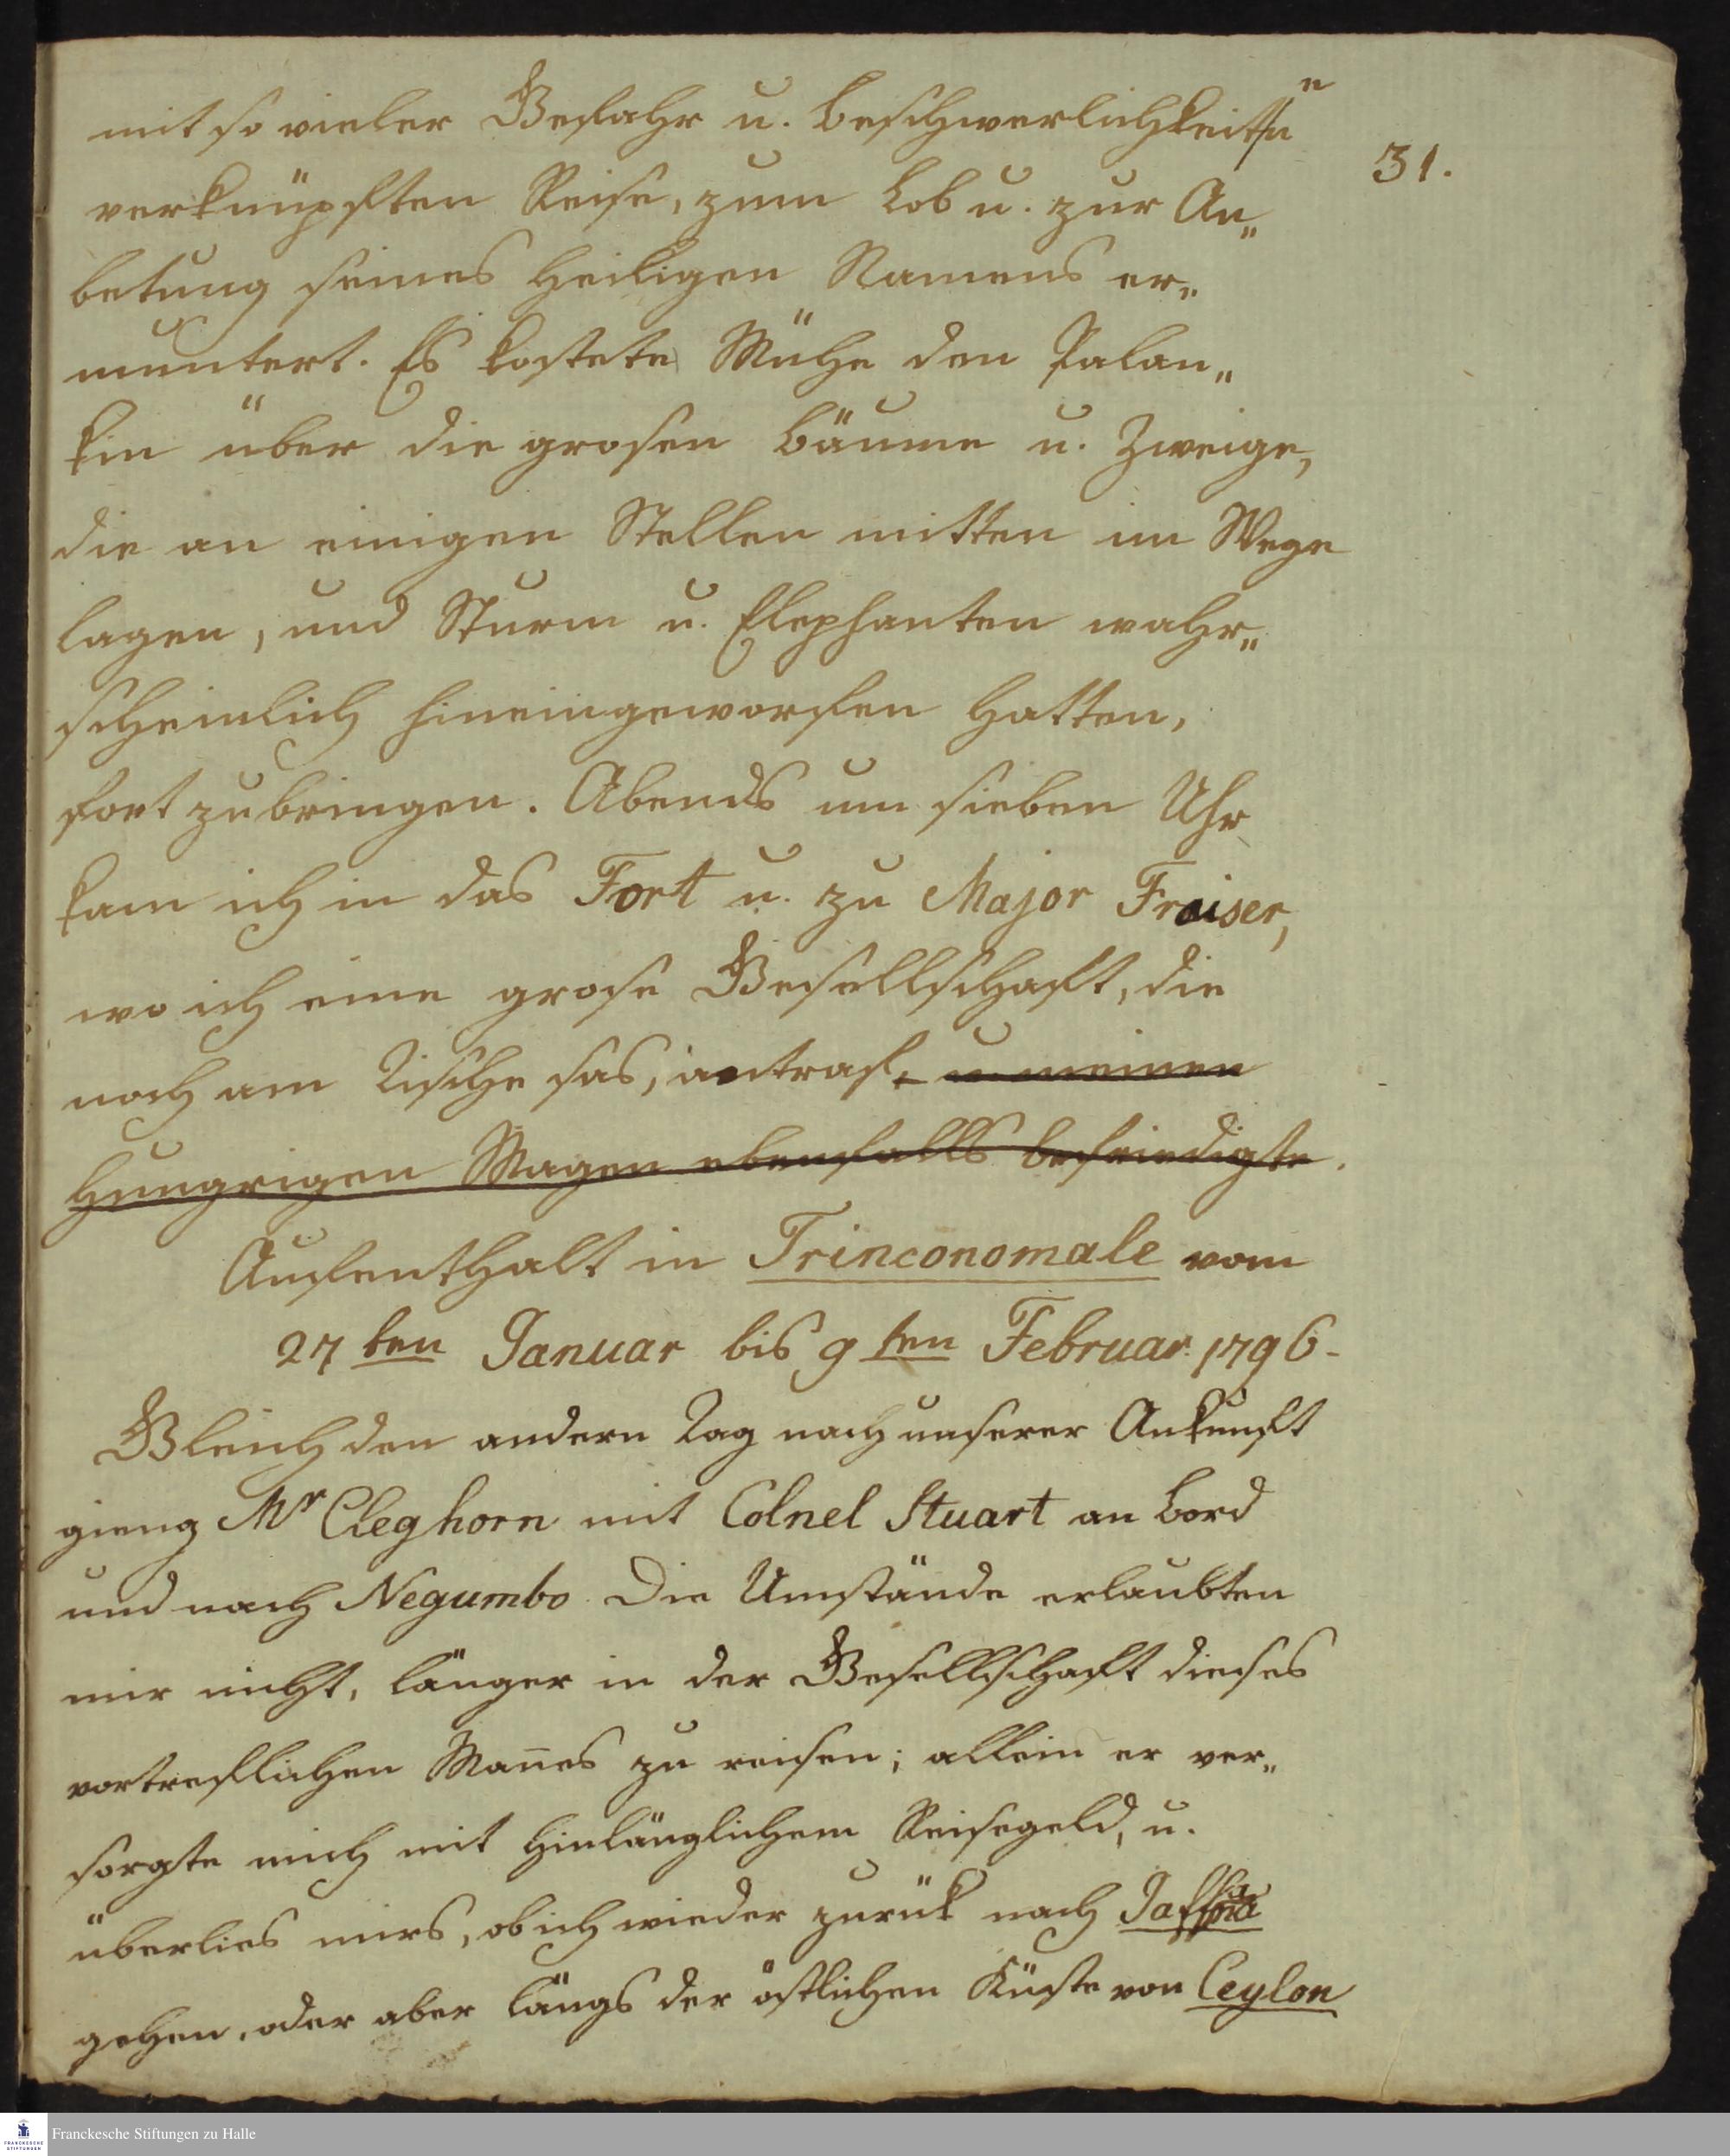 mit so vieler Gefahr u. Beschwerlichkeiten
31.
verknüpften Reise, zum Lob u. zur An„
betung seines heiligen Namens er„
muntert. Es kostete Mühe den Palan„
kin über die grosen Bäume u. Zweige,
die an einigen Stellen mitten im Wege
lagen, und Sturm u. Elephanten wahr„
scheinlich hineingeworfen hatten,
fortzubringen. Abends um sieben Uhr
kam ich in das Fort u. zu Major Fraiser,
wo ich eine grose Gesellschaft, die
noch am Tische sas, antraf, u. meinen
hungrigen Magen ebenfalls befriedigte.
Aufenthalt in Trinconomale vom
27ten Januar bis 9ten Februar 1796-
Gleich den andern Tag nach unserer Ankunft
gieng Mr Cleghorn mit Colnel Stuart an Bord
und nach Negumbo. Die Umstände erlaubten
mir nicht, länger in der Gesellschaft dieses
vortreflichen Mañes zu reisen; allein er ver„
sorgte mich mit hinlänglichem Reisegeld, u.
überlies mirs, ob ich wieder zurük nach
gehen, oder aber längs der östlichen Küste von Ceylon
Franckesche Stiftungen zu Halle
FRANCKESCHE
STIFTUNGEN